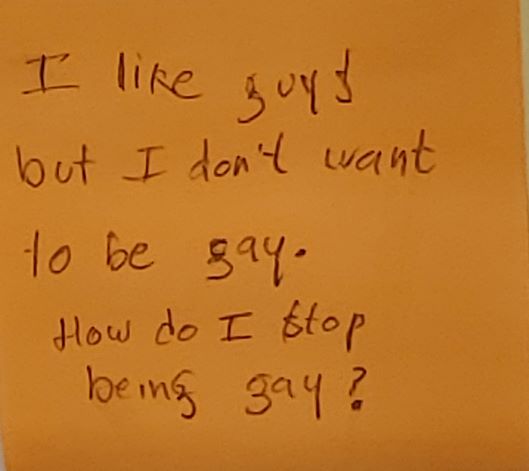 I like guys
but I don't want
to be gay.
How do I stop
being gay?